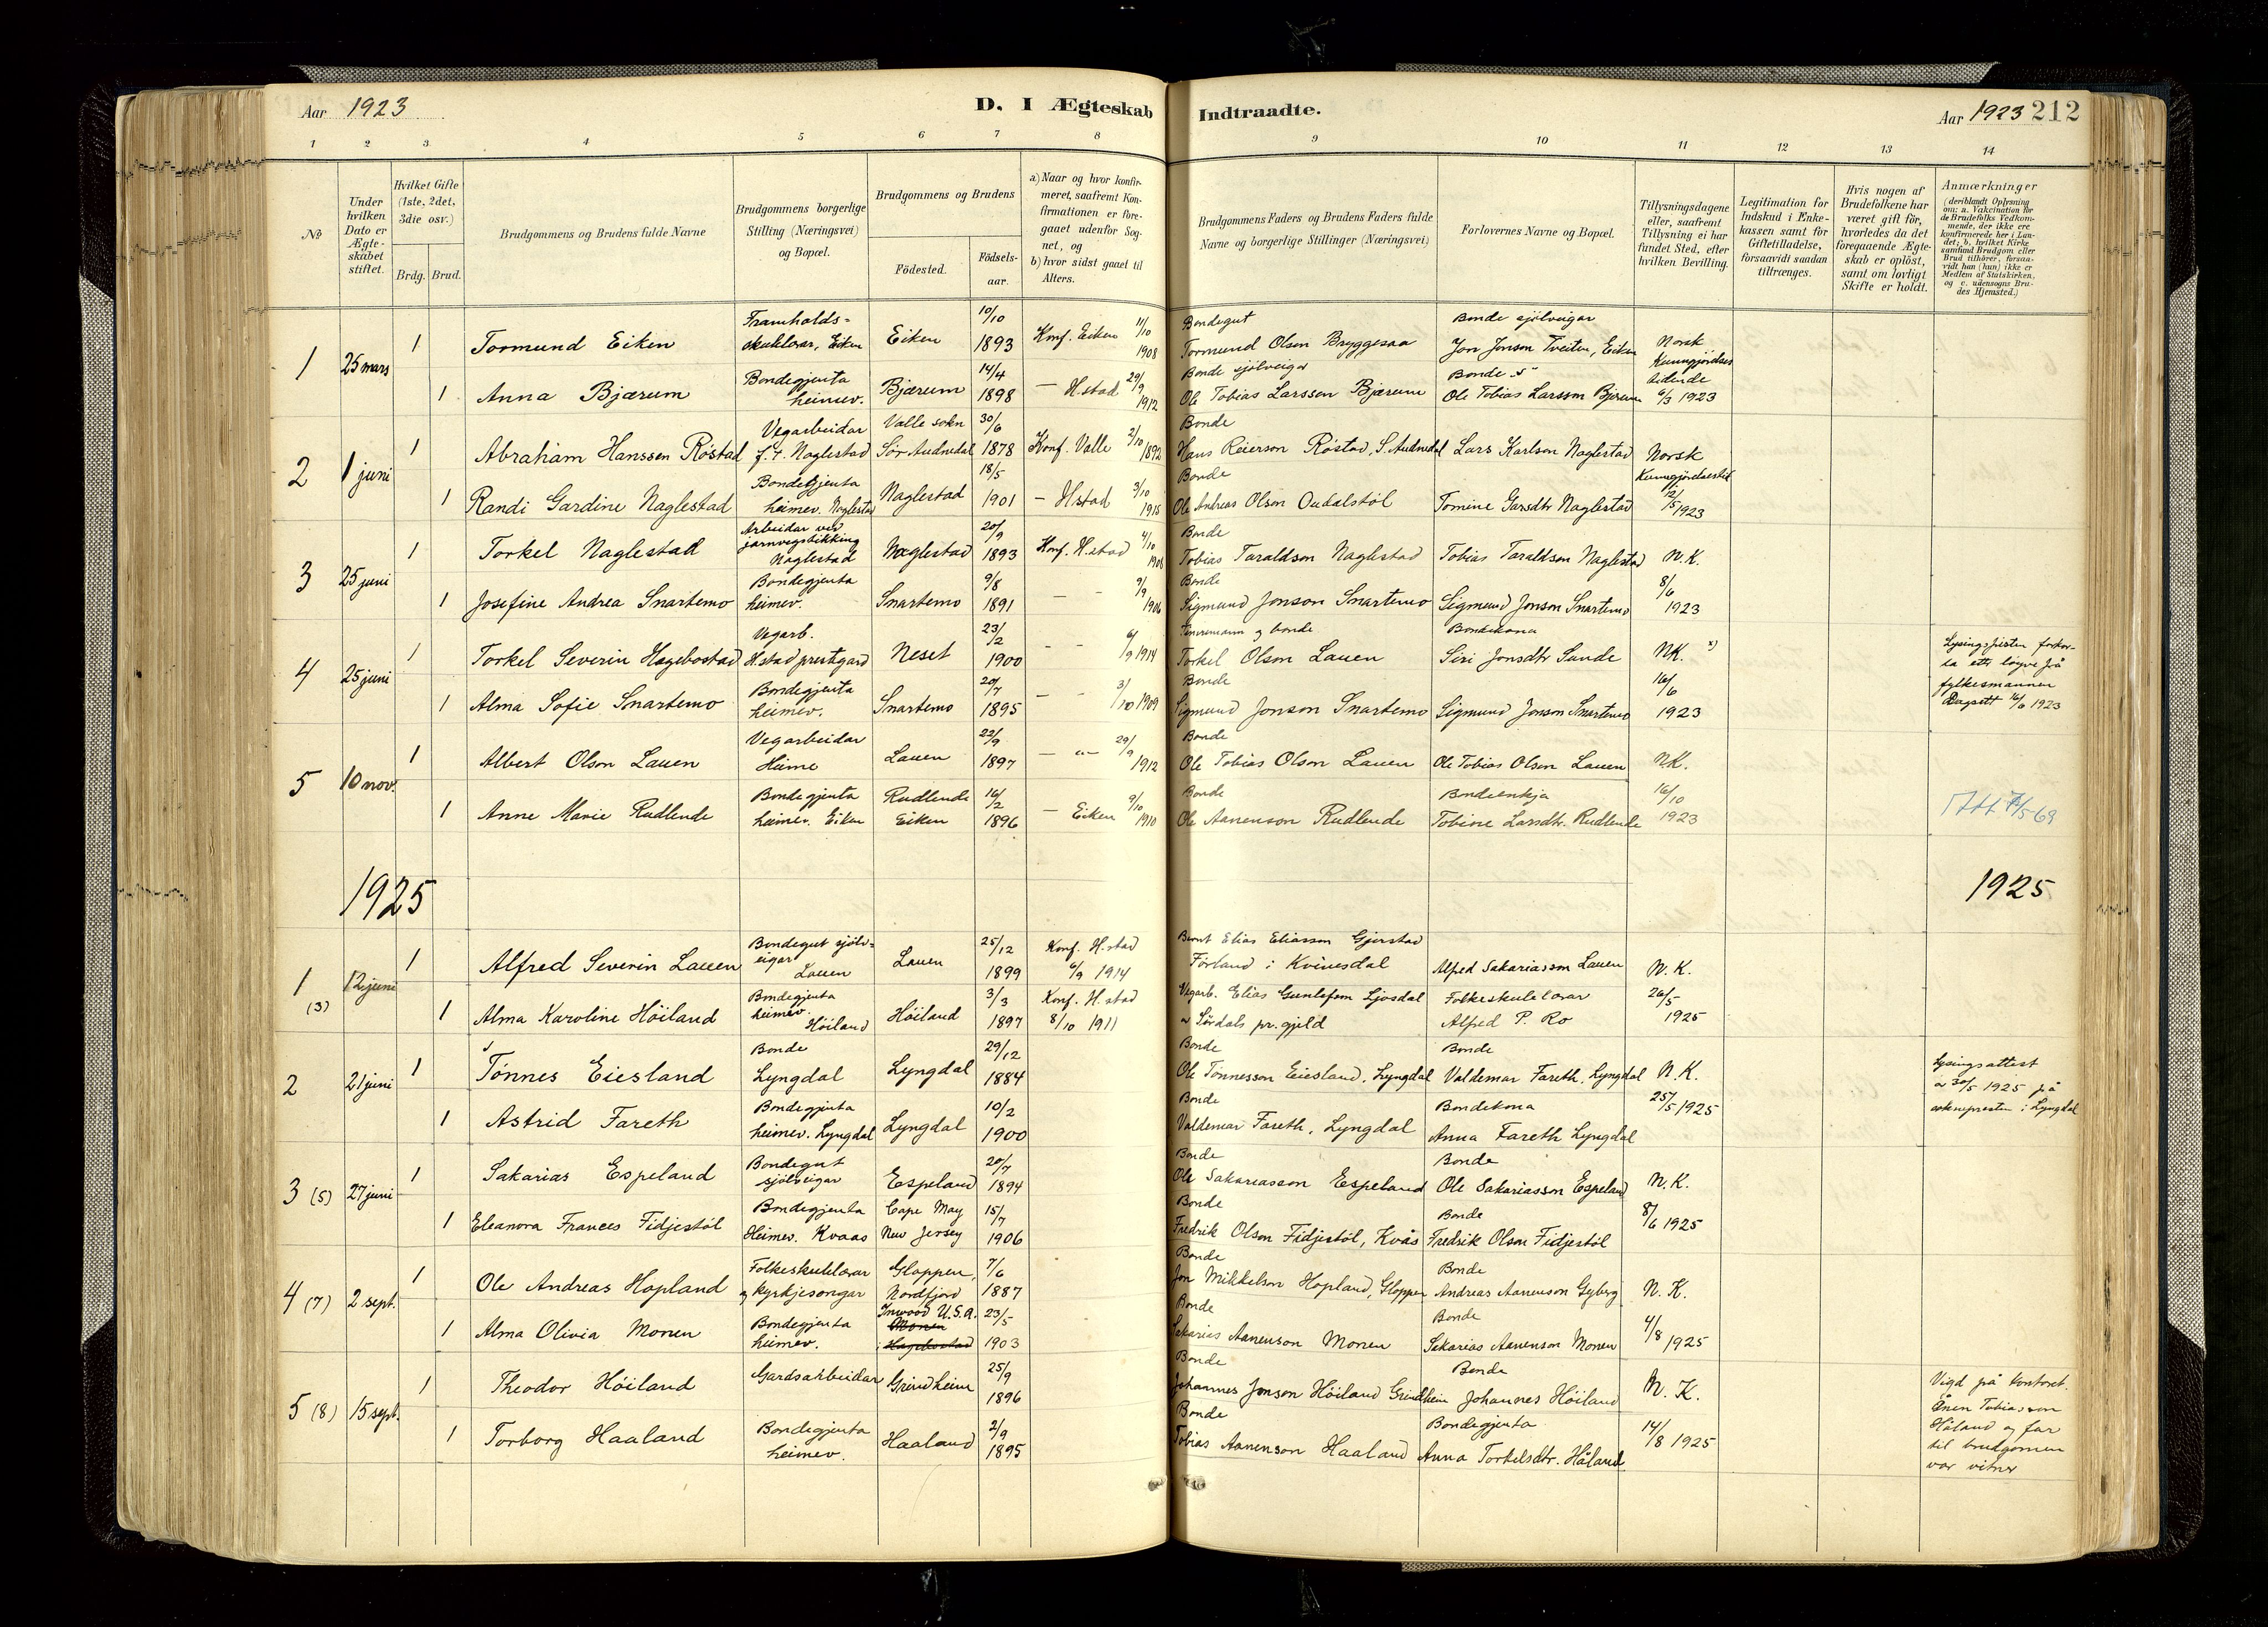 Aar 1923
D. I Ægteskab Indtraadte.
Aar 1923 212
1 2 3 4 5 6 7 8 9 10 11 12 13 14
No
Under hvilken Dato er Ægte-skabet stiftet.
Hvilket Gifte (1ste, 2det, 3die osv.)
Brdg. Brud.
Brudgommens og Brudens fulde Navne
Brudgommens borgerlige Stilling (Næringsvei) og Bopæl.
Brudgommens og Brudens
Födested.
Födsels-aar.
a) Naar og hvor konfir-meret, saafremt Kon-firmationen er fore-gaaet udenfor Sog-net, og
b) hvor sidst gaaet til Alters.
Brudgommens Faders og Brudens Faders fulde Navne og borgerlige Stillinger (Næringsvei)
Forlovernes Navne og Bopæl.
Tillysningsdagene eller, saafremt Tillysning ei har fundet Sted, efter hvilken Bevilling.
Legitimation for Indskud i Enke-kassen samt for Giftetilladelse, forsaavidt saadan tiltrænges.
Hvis nogen af Brudefolkene har været gift för, hvorledes da det foregaaende Ægte-skab er oplöst, samt om lovligt Skifte er holdt.
Anmærkninger (deriblandt Oplysning om: a. Vakcination for de Brudefolks Vedkom-mende, der ikke ere konfirmerede her i Lan-det; b. hvilket Kirke-samfund Brudgom eller Brud tilhörer, forsaa-vidt han (hun) ikke er Medlem af Statskirken, og c. udensogns Bru-des Hjemsted.)
1 25 mars 1 Tormund Eiken Framhalds-skulelærar, Eiken Eiken 10/10 1893 Konf. Eiken 11/10 1908 Bondegut Tormund Olson Bryggesaa Bonde sjölveigar Jon Jonson Tveiten, Eiken Norsk Kunngjördses tidende 6/3 1923
1 Anna Bjærum Bondegjenta heimev. Bjærum 14/4 1898 — H.stad 29/9 1912 Bonde sjölveigar Ole Tobias Larssen Bjærum Bonde s Ole Tobias Larsson Bjærum
2 1 juni 1 Abraham Hanssen Röstad Vegarbeidar f. t. Naglestad Valle sokn Sör Audnedal 30/6 1878 Konf. Valle 2/10 1892 Bonde Hans Reierson Röstad, S. Audnedal Lars Karlson Naglestad Norsk Kunngjördsestid 12/5 1923
1 Randi Gardine Naglestad Bondegjenta heimev. Naglestad Naglestad 18/5 1901 — H.stad 3/10 1915 Bonde Ole Andreas Olson Oudalstöl Tomine Garsdtr Naglestad
3 25 juni 1 Torkel Naglestad Arbeidar ved jarnvegstikking Naglestad Naglestad 20/9 1893 Konf. H.stad 4/10 1908 Bonde Tobias Taraldson Naglestad Tobias Taraldson Naglestad N.K. 8/6 1923
1 Josefine Andrea Snartemo Bondegjenta heimev. Snartemo 9/8 1891 — - 9/9 1906 Bonde Sigmund Jonson Snartemo Sigmund Jonson Snartemo
4 25 juni 1 Torkel Severin Hægebostad Vegarb. H.stad prestgard Neset 23/2 1900 - - 6/9 1914 og bonde Torkel Olson Lauen Bondekona Siri Jonsdtr Sunde NK. x) 16/6 1923
1 Alma Sofie Snartemo Bondegjenta heimev. Snartemo 20/7 1895 - - 3/10 1909 Bonde Sigmund Jonson Snartemo Sigmund Jonson Snartemo
Lysingsfristen forkor-ta etter löyve frå fylkesmannen Dagsett 16/6 1923
5 10 nov. 1 Albert Olson Lauen Vegarbeidar Heime Lauen 22/9 1897 — " — 29/9 1912 Bonde Ole Tobias Olson Lauen Ole Tobias Olson Lauen N.K. 16/10 1923
1 Anne Marie Rudlende Bondegjenta heimev. Eiken Rudlende Eiken 16/2 1896 — Eiken 9/10 1910 Bonde Ole Aanenson Rudlende Bondeenkja Tobine Larsdtr. Rudlende
1925 1925
1 (3) 12 juni 1 Alfred Severin Lauen Bondegut sjölv-eigar Lauen Lauen 25/12 1899 Konf. H.stad 6/9 1914 Bernt Elias Eliasson Gjerstad Förland i Kvinesdal Alfred Sakariasson Lauen N.K. 26/5 1925
1 Alma Karoline Höiland Bondegjenta heimev. Höiland Höiland 3/3 1897 Konf. H.stad 8/10 1911 Vegarb. Elias Gunlefsen Ljosdal Sirdals pr.gjeld Folkeskulelærar Alfred P. Ro
2 21 juni 1 Tönnes Eiesland Bonde Lyngdal Lyngdal 29/12 1884 Bonde Ole Tönnesson Eiesland, Lyngdal Bonde Valdemar Fareth, Lyngdal N.K. 25/5 1925
1 Astrid Fareth Bondegjenta heimev. Lyngdal Lyngdal 10/2 1900 Bonde Valdemar Fareth, Lyngdal Bondekona Anna Fareth Lyngdal
Lysingsattest 30/5 1925 på soknepresten i Lyngdal
3 (5) 27 juni 1 Sakarias Espeland Bondegut sjölveigar Espeland 20/7 1894 Bonde Ole Sakariasson Espeland Bonde Ole Sakariasson Espeland N.K. 8/6 1925
1 Eleanora Frances Fidjestöl Bondegjenta Heimev. Kvaas Cape May New Jersey 15/7 1906 Bonde Fredrik Olson Fidjestöl, Kvås Bonde Fredrik Olson Fidjestöl
4 (7) 2 sept. 1 Ole Andreas Hopland Folkeskulelærar og kyrkjesongar Gloppen, Nordfjord 7/6 1887 Bonde Jon Mikkelson Hopland, Gloppen Bonde Andreas Aanenson Gyberg N.K. 4/8 1925
1 Alma Olivia Monen Bondegjenta heimev. Inwood U.S.A. Monen i Hægebostad 23/5 1903 Bonde Sakarias Aanenson Monen Bonde Sakarias Aanenson Monen
5 (8) 15 sept. 1 Theodor Höiland Gardsarbeidar Grindheim 25/9 1896 Bonde Johannes Jonson Höiland Grindheim Bonde Johannes Höiland N.K. 14/8 1925
1 Torborg Haaland Bondegjenta heimev. Haaland 2/9 1895 Bonde Tobias Aanenson Haaland Bondegjenta Anna Torkelsdtr. Håland
Vigd på kontoret. Ånen Tobiasson Håland og far til brudgomen var vitner